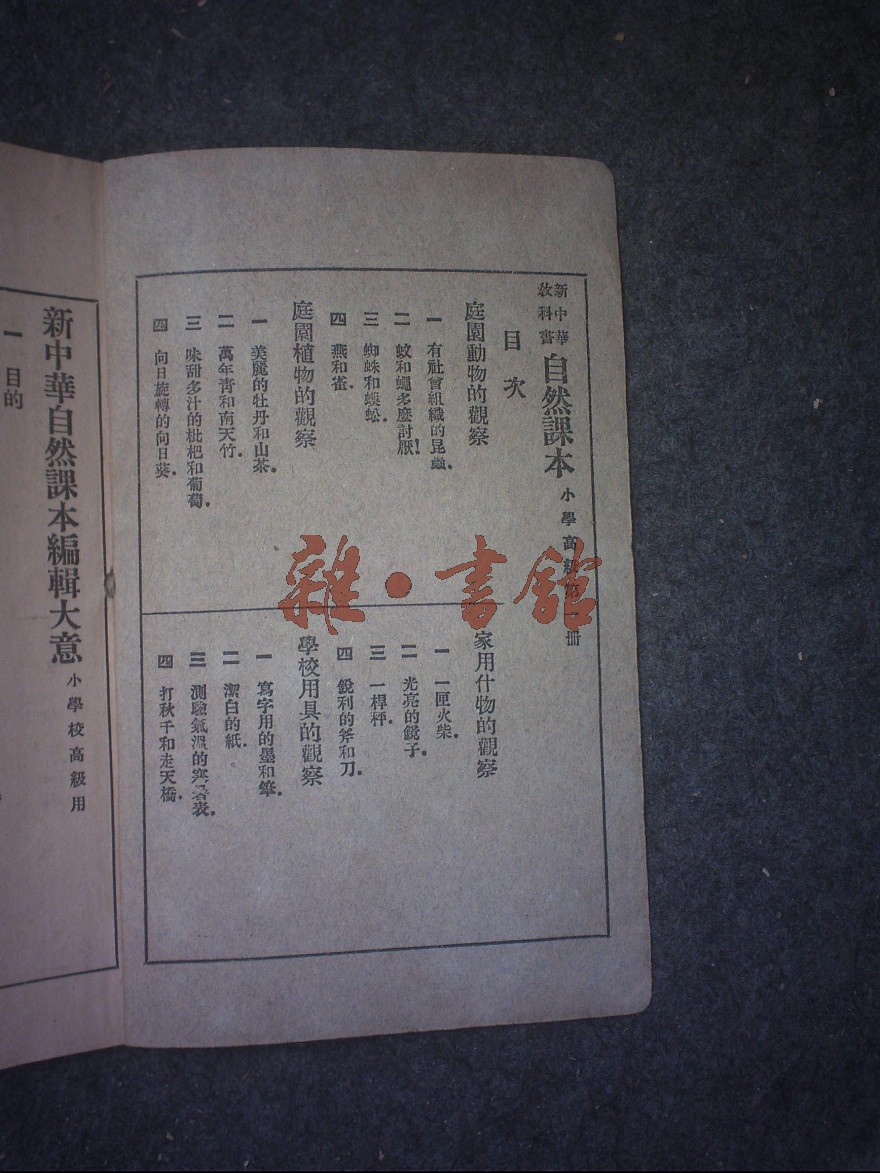 新中華
教科書
自然課本
小學高級第一冊
目次
庭園動物的觀察
一 有社會組織的昆蟲.
二 蚊和蠅多麼討厭!
三 蜘蛛和蜈蚣.
四 燕和雀.
庭園植物的觀察
一 美麗的牡丹和山茶.
二 萬年青和南天竹.
三 味甜多汁的枇杷和葡萄.
四 向日旋轉的向日葵.
家用什物的觀察
一 一匣火柴.
二 光亮的鏡子.
三 一桿秤.
四 銳利的斧和刀.
學校用具的觀察
一 寫字用的墨和筆.
二 潔白的紙.
三 測驗氣溫的寒暑表.
四 打秋千和走天橋.
新中華自然課本編輯大意
小學校高級用
一 目的
雜·書館